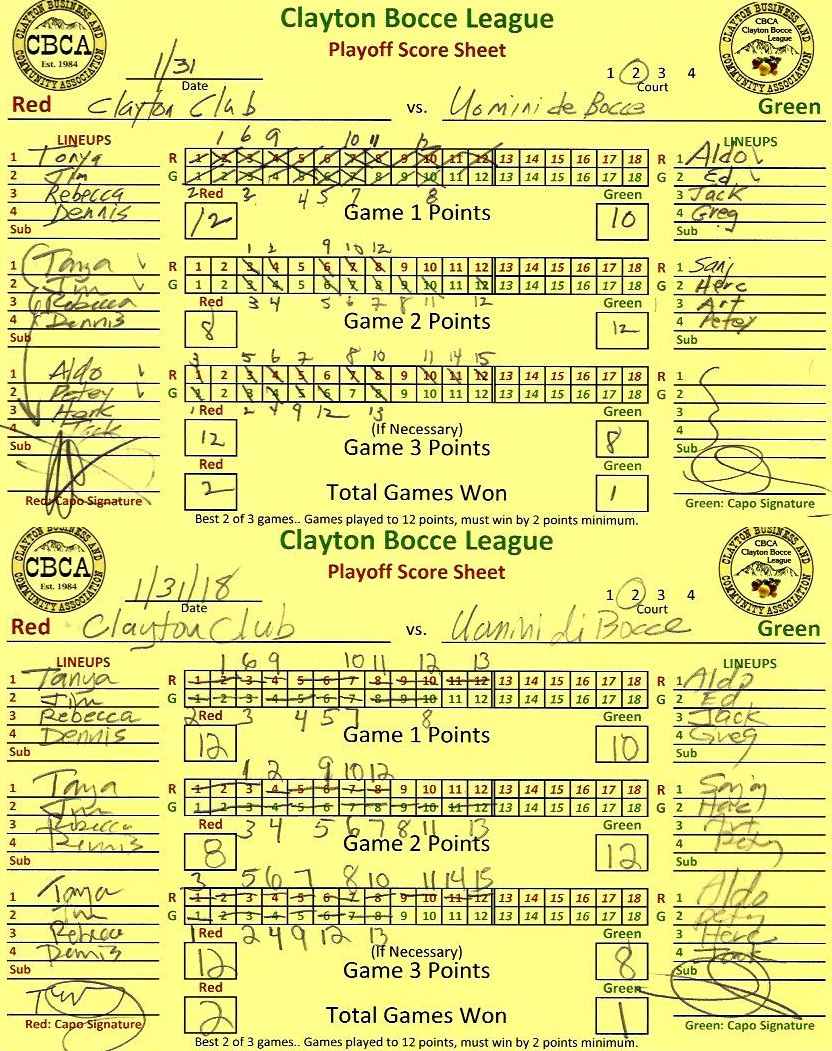 Clayton Bocce League
Playoff Score Sheet
CLAYTON BUSINESS AND COMMUNITY ASSOCIATION
CBCA
Est. 1984
CLAYTON BUSINESS AND COMMUNITY ASSOCIATION
CBCA
Clayton Bocce League
1/31
Date
1 2 3 4
Court
Red Clayton Club vs. Uomini de Bocce Green
LINEUPS 1 6 9 10 11 12 LINEUPS
1 Tonya R 1 2 3 4 5 6 7 8 9 10 11 12 13 14 15 16 17 18 R 1 Aldo
2 Jim G 1 2 3 4 5 6 7 8 9 10 11 12 13 14 15 16 17 18 G 2 Ed
3 Rebecca 2 Red 3 4 5 7 8 Green 3 Jack
4 Dennis 12 Game 1 Points 10 4 Greg
Sub Sub
1 2 9 10 12
1 Tanya R 1 2 3 4 5 6 7 8 9 10 11 12 13 14 15 16 17 18 R 1 Sanj
2 Jim G 1 2 3 4 5 6 7 8 9 10 11 12 13 14 15 16 17 18 G 2 Herc
3 Rebecca Red 3 4 5 6 7 8 11 12 Green 3 Art
4 Dennis 8 Game 2 Points 12 4 Petey
Sub Sub
3 5 6 7 8 10 11 14 15
1 Aldo R 1 2 3 4 5 6 7 8 9 10 11 12 13 14 15 16 17 18 R 1
2 Petey G 1 2 3 4 5 6 7 8 9 10 11 12 13 14 15 16 17 18 G 2
3 Herk 1 Red 2 4 9 12 13 Green 3
4 Jack 12 (If Necessary) 8 4
Sub Game 3 Points Sub
Red Green
2 Total Games Won 1
Red: Capo Signature Green: Capo Signature
Best 2 of 3 games.. Games played to 12 points, must win by 2 points minimum.
Clayton Bocce League
Playoff Score Sheet
CLAYTON BUSINESS AND COMMUNITY ASSOCIATION
CBCA
Est. 1984
CLAYTON BUSINESS AND COMMUNITY ASSOCIATION
CBCA
Clayton Bocce League
1/31/18
Date
1 2 3 4
Court
Red Clayton Club vs. Uomini di Bocce Green
LINEUPS 1 6 9 10 11 12 13 LINEUPS
1 Tanya R 1 2 3 4 5 6 7 8 9 10 11 12 13 14 15 16 17 18 R 1 Aldo
2 Jim G 1 2 3 4 5 6 7 8 9 10 11 12 13 14 15 16 17 18 G 2 Ed
3 Rebecca 2 Red 3 4 5 7 8 Green 3 Jack
4 Dennis 12 Game 1 Points 10 4 Greg
Sub Sub
1 2 9 10 12
1 Tanya R 1 2 3 4 5 6 7 8 9 10 11 12 13 14 15 16 17 18 R 1 Sanjay
2 Jim G 1 2 3 4 5 6 7 8 9 10 11 12 13 14 15 16 17 18 G 2 Herc
3 Rebecca Red 3 4 5 6 7 8 11 13 Green 3 Art
4 Dennis 8 Game 2 Points 12 4 Petey
Sub Sub
3 5 6 7 8 10 11 14 15
1 Tanya R 1 2 3 4 5 6 7 8 9 10 11 12 13 14 15 16 17 18 R 1 Aldo
2 Jim G 1 2 3 4 5 6 7 8 9 10 11 12 13 14 15 16 17 18 G 2 Petey
3 Rebecca 1 Red 2 4 9 12 13 Green 3 Herc
4 Dennis 12 (If Necessary) 8 4 Jack
Sub Game 3 Points Sub
Red Green
2 Total Games Won 1
Red: Capo Signature Green: Capo Signature
Best 2 of 3 games.. Games played to 12 points, must win by 2 points minimum.